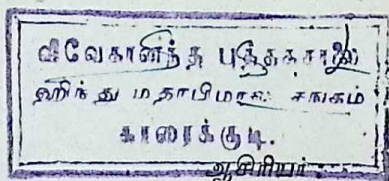 விவேகானந்த புத்தகசாலை
ஹிந்து மதாபிமான சங்கம்
காரைக்குடி.
ஆசிரியர்